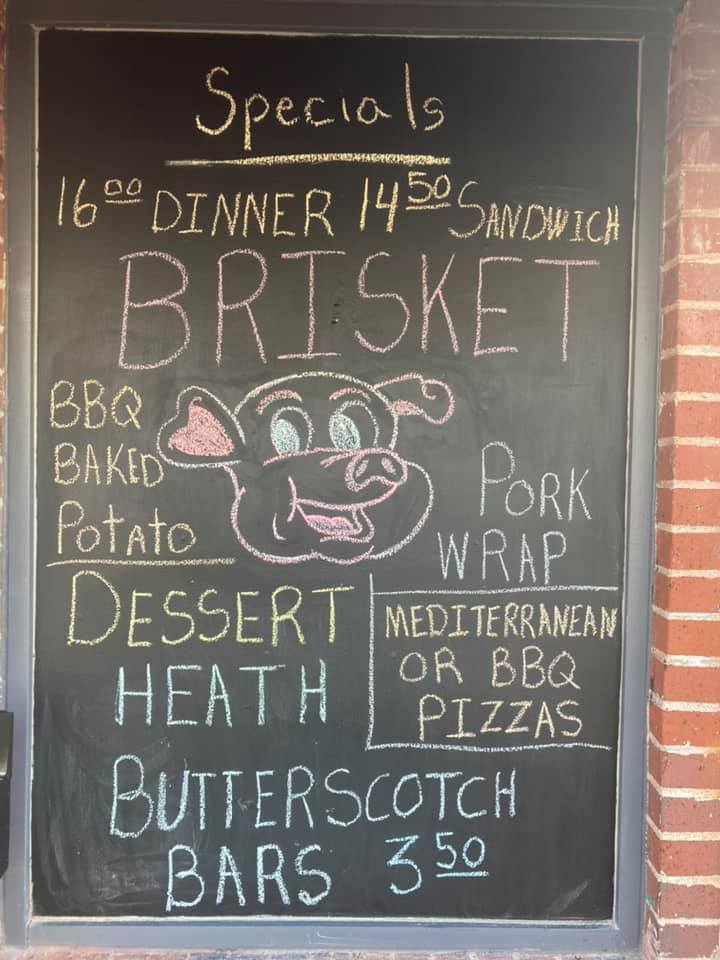 Specials
16⁰⁰ DINNER 14⁵⁰ SANDWICH
BRISKET
BBQ
BAKED
Potato
PORK
WRAP
DESSERT
HEATH
MEDITERRANEAN
OR BBQ
PIZZAS
BUTTERSCOTCH
BARS 3⁵⁰